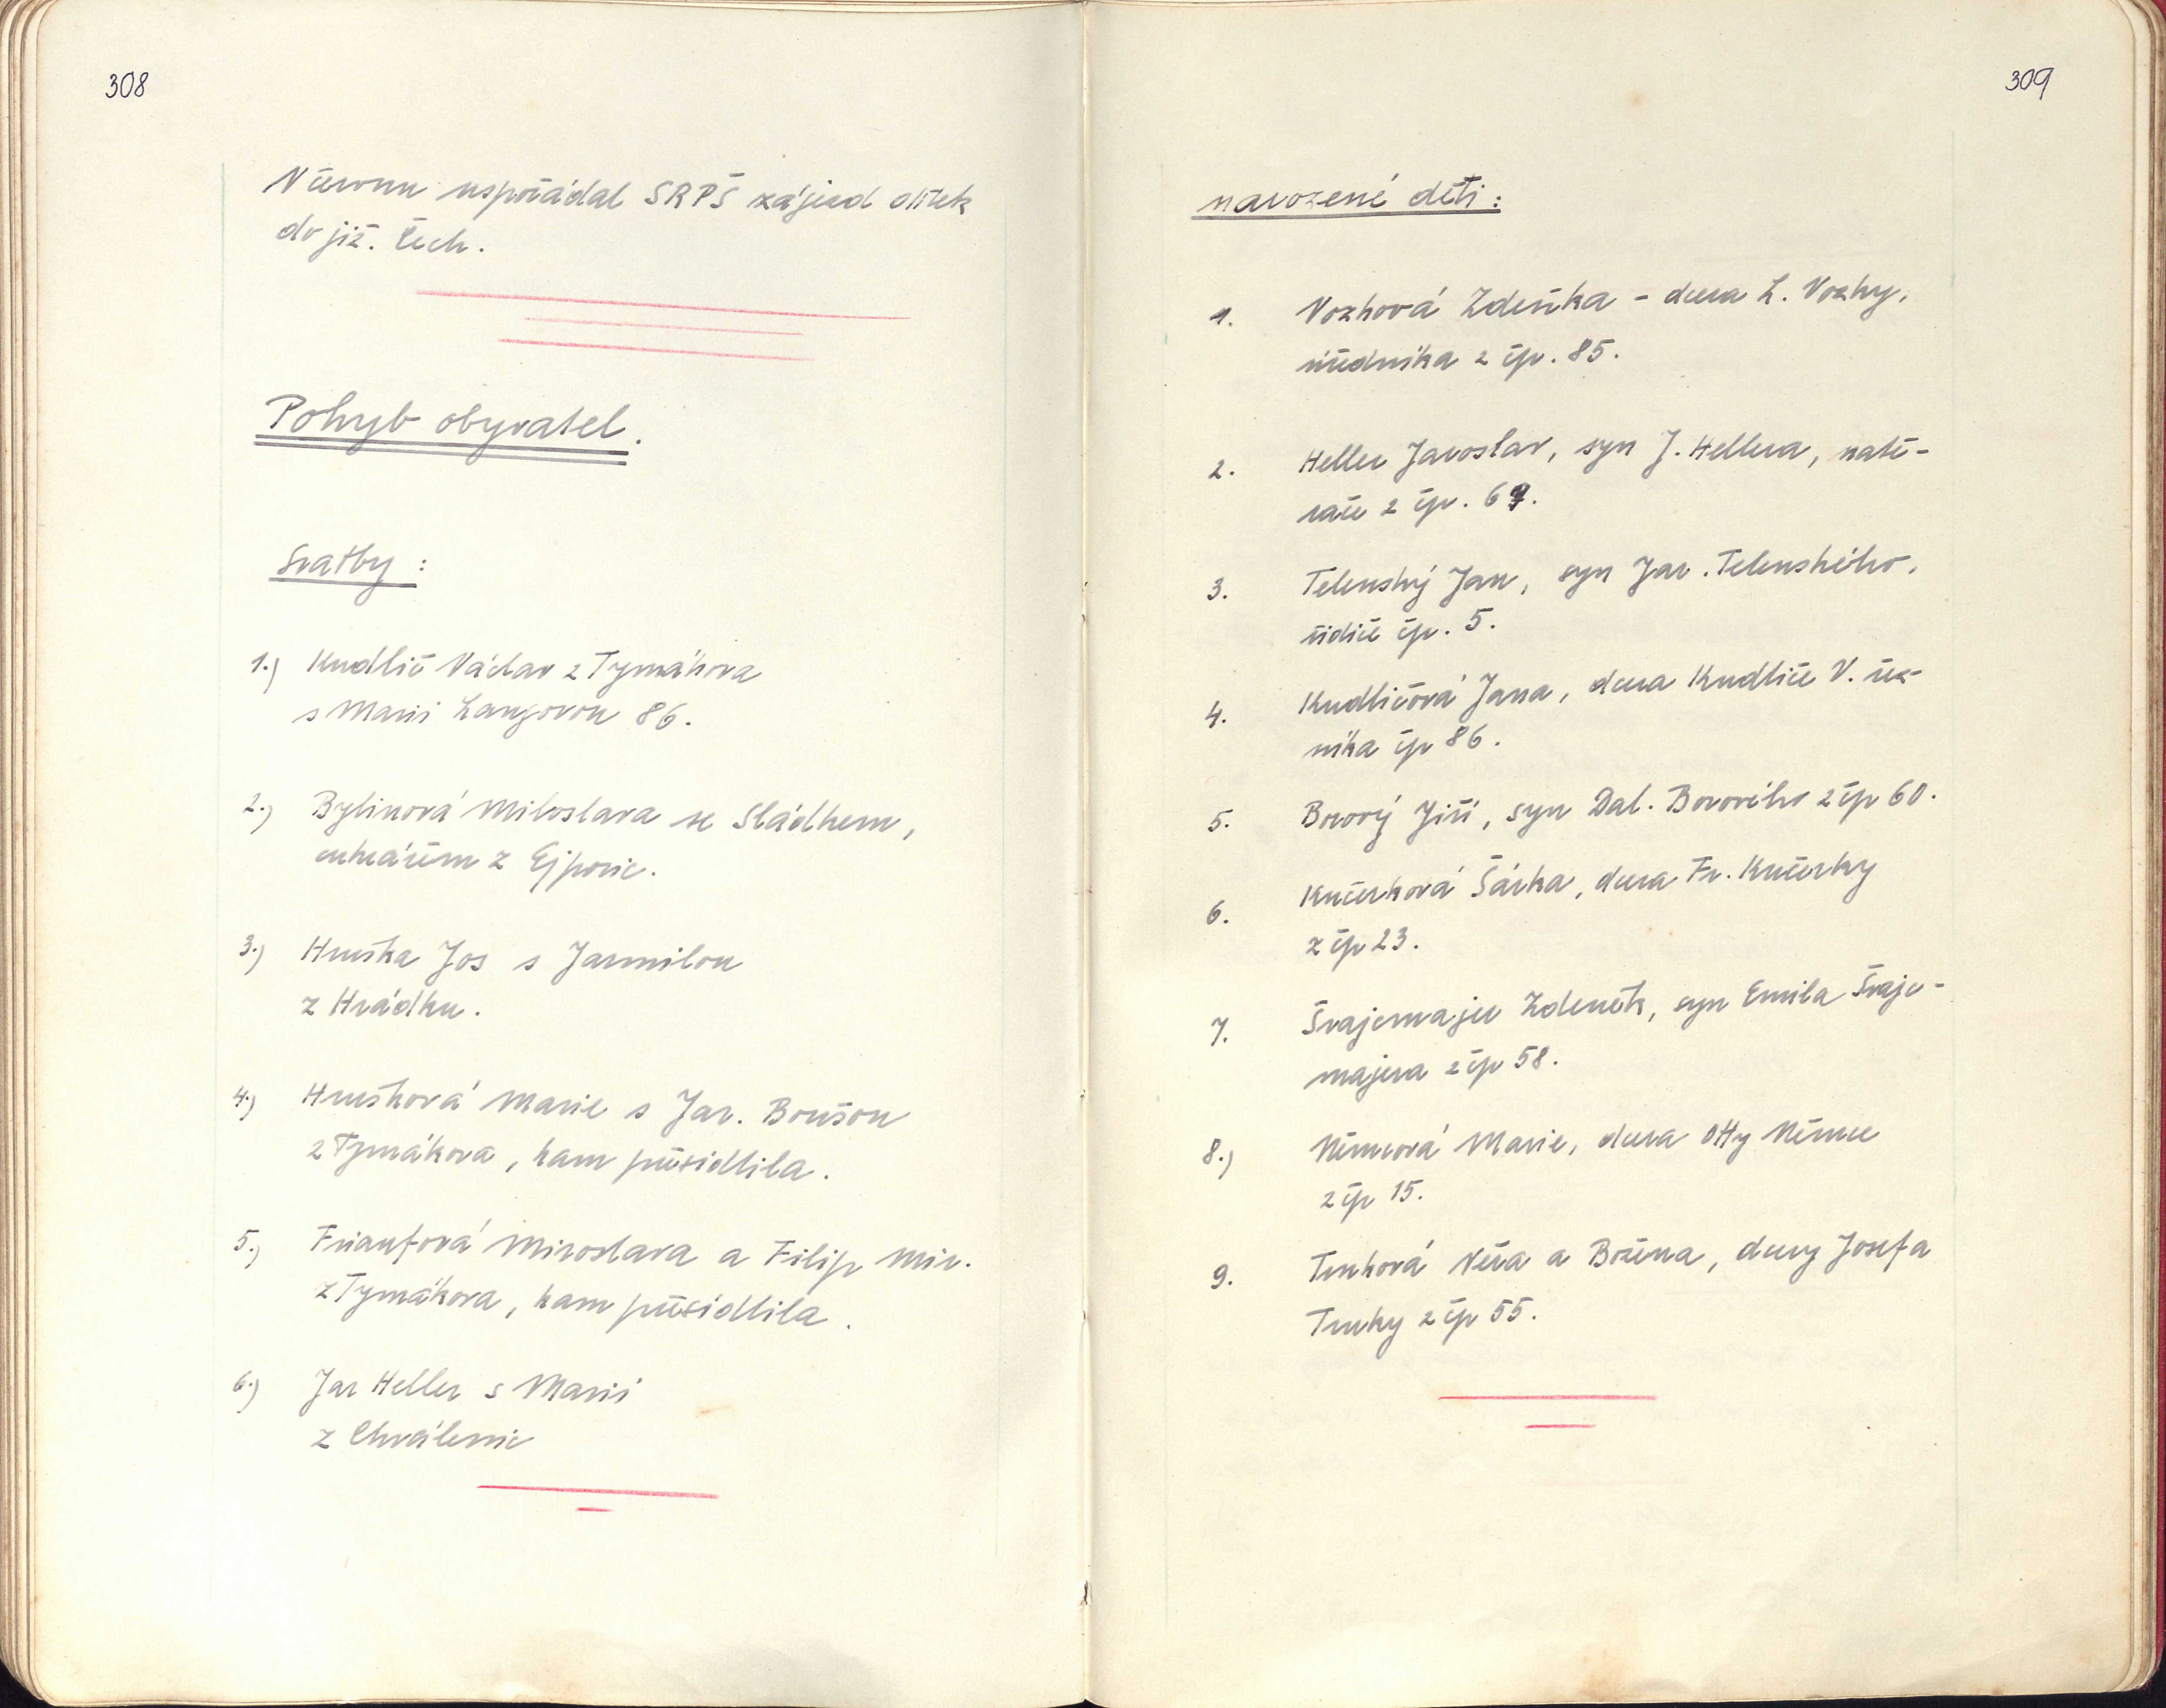 308
V červnu uspořádal SRPŠ zájezd dítek
do již. Čech.
Pohyb obyvatel.
Svatby:
1.) Kudlič Václav z Tymákova
s Marií Langovou 86.
2.) Bylinová Miloslava se Sládkem,
cukrářem z Ejpovic.
3.) Hruška Jos s Jarmilou
z Hrádku.
4.) Hrušková Marie s Jar. Boušou
z Tymákova, kam přesídlila.
5.) Friaufová Miroslava a Filip Mir.
z Tymákova, kam přesídlila.
6.) Jar Heller s Marií
z Chválenic
309
narozené děti:
1. Vozková Zdeňka - dcera L. Vozky,
úředníka z čp. 85.
2. Heller Jaroslav, syn J. Hellera, natě-
rače z čp. 69.
3. Telenský Jan, syn Jar. Telenského,
řidiče čp. 5.
4. Kudličová Jana, dcera Kudliče V. řez-
níka čp 86.
5. Borový Jiří, syn Dal. Borového z čp 60.
6. Kučerková Šárka, dcera Fr. Kučerky
z čp 23.
7. Švajcmajer Zdeněk, syn Emila Švajc-
majera z čp 58.
8.) Němcová Marie, dcera Otty Němce
z čp 15.
9. Trnková Věra a Božena, dcery Josefa
Trnky z čp 55.